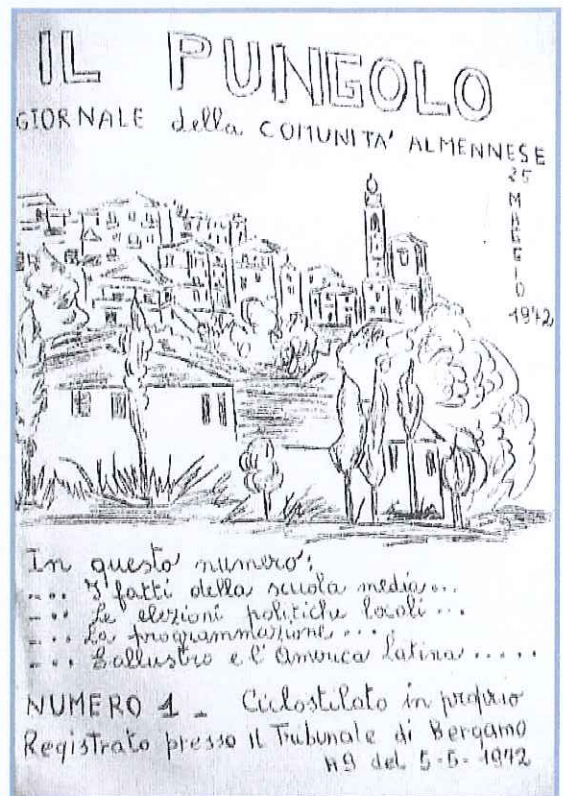 IL PUNGOLO
GIORNALE della COMUNITA' ALMENNESE
25
MAGGIO
1972
In questo numero:
... I fatti della scuola media...
... Le elezioni politiche locali...
... La programmazione...
... Sallustro e l'America Latina.....
NUMERO 1 - Ciclostilato in proprio
Registrato presso il Tribunale di Bergamo
N9 del 5-5-1972